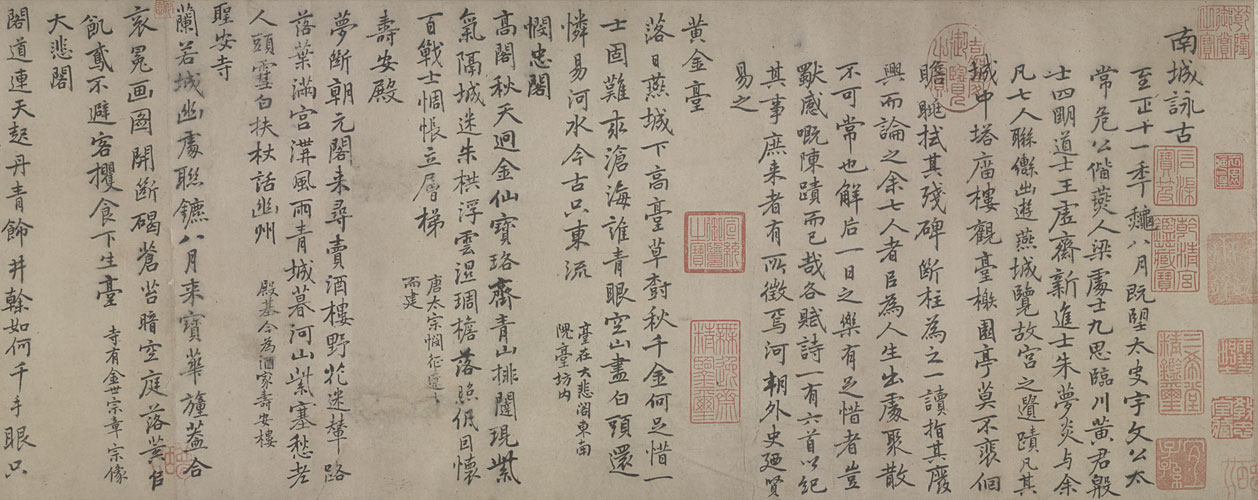 南城詠古
至正十一年龝八月既望太史宇文公太
常危公偕燕人梁處士九思臨川黃君殷
士四明道士王虛齋新進士朱夢炎与余
凡七人聯轡出遊燕城覽故宮之遺蹟凡其
城中塔廟樓觀臺榭園亭莫不裵佪
瞻眺拭其殘碑斷柱為之一讀指其廢
興而論之余七人者以為人生出處聚散
不可常也解后一日之樂有足惜者豈
獨感嘅陳蹟而已哉各賦詩一有六首以紀
其事庶来者有所徵焉河朔外史廼賢
易之
黄金臺
落日燕城下高臺草樹秋千金何足惜一
士固難求滄海誰青眼空山盡白頭還
憐易河水今古只東流
臺在大悲閣東南
隗臺坊內
憫忠閣
高閣秋天迥金仙寶珞齊青山排闥現紫
氣隔城迷朱栱浮雲濕琱檐落照低因懷
百戰士惆悵立層梯
唐太宗憫征遼士
而建
壽安殿
夢斷朝元閣来尋賣酒樓野花迷輦路
落葉滿宮溝風雨青城暮河山紫塞愁老
人頭雪白扶杖話幽州
殿基今為酒家壽安樓
聖安寺
蘭若城幽處聯鑣八月来寶華幢蓋合
衮冕画圖開斷碣蒼苔暗空庭落葉催
飢鳶不避客攫食下生臺
寺有金世宗章宗像
大悲閣
閣道連天起丹青飾井榦如何千手眼只